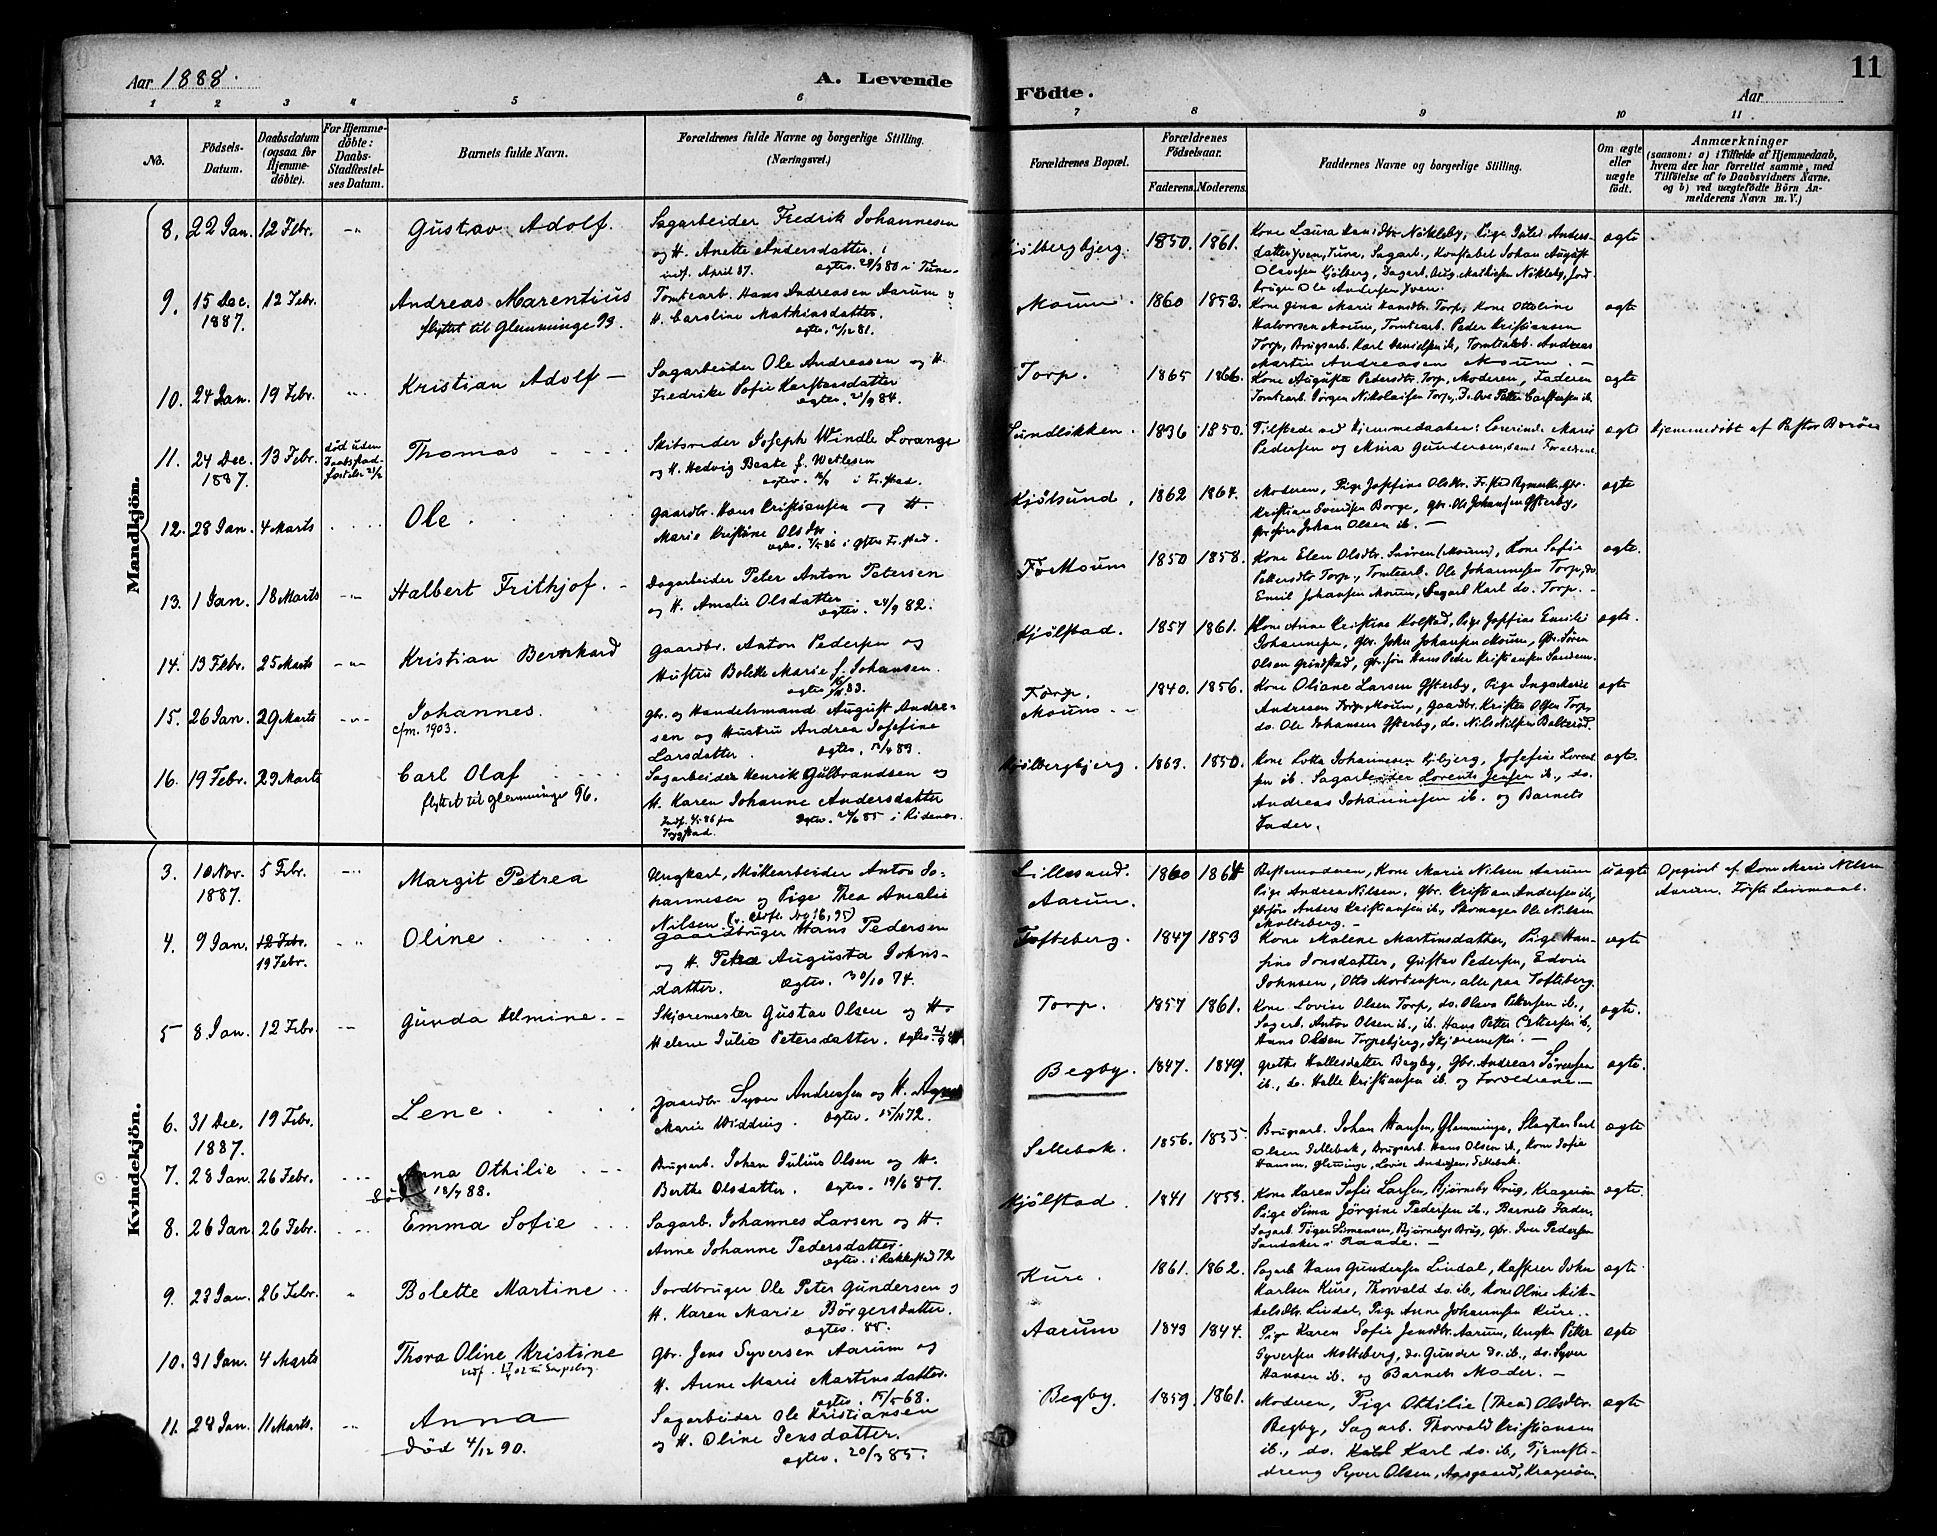 Aar 1888.
A. Levende
Födte.
Aar
11
1 2 3 4 5 6 7 8 9 10 11
No.
Födsels-
Datum.
Daabsdatum
(ogsaa for
Hjemme-
döbte).
For Hjemme-
döbte:
Daabs-
Stadfestel-
ses Datum.
Barnets fulde Navn.
Forældrenes fulde Navne og borgerlige Stilling.
(Næringsvei.)
Forældrenes Bopæl.
Forældrenes
Födselsaar.
Faderens.
Moderens.
Faddernes Navne og borgerlige Stilling.
Om ægte
eller
uægte
födt.
Anmærkninger
(saasom: a) i Tilfælde af Hjemmedaab,
hvem der har forrettet samme, med
Tilföielse af to Daabsvidners Navne,
og b) ved uægtefödte Börn An-
melderens Navn m. V.)
Mandkjön.
8. 22 Jan. 12 Febr. -"- Gustav Adolf.
Sagarbeider Fredrik Johannesen
og H. Anette Andersdatter.
indf. April 87. ægtev. 29/3 80 i Tune
Kjølbergbjerg. 1850. 1861.
Olavsen Kjølberg, Sagarb. Aug. Mathisen Nökleby, Jord-
bruger Ole Andersen Yven.
ægte
9. 15 Dec. 1887. 12 Febr. Andreas Marentius
flyttet til Glemminge 93.
Tomtearb. Hans Andreasen Aarum og
H. Caroline Mathiasdatter.
ægtev. 2/12 81.
Moum. 1860 1853.
Kone Gina Marie Hansdtr. Torp, Kone Ottoline
Halvorsen Moum, Tomtearb. Peder Kristiansen
Torp, Brugsarb. Karl Danielsen ib, Tomtearb. Andreas
Martin Andreasen Moum. -
ægte
10. 24 Jan. 19 Febr. -"- Kristian Adolf -
Sagarbeider Ole Andreasen og H.
Fredrike Sofie Karstensdatter
ægtev. 21/9 84.
Torp. 1865 1866.
Kone Augusta Pedersdtr. Torp, Moderen, Faderen
Tomtearb. Jörgen Nikolaisen Torp,
ægte
11. 24 Dec. 1887. 13 Febr. død uden
Daabsstad-
Thomas - - -
Joseph Windle Lorange
og H. Hedvig Beate f. Wetlesen
ægtev. i Fr.stad.
Sundlökken. 1836 1850.
Tilstede ved Hjemmedaaben: Lærerinde Marie
Pedersen og Mina Gundersen, samt Forældrene.
ægte
Hjemmedøbt af Pastor Borøe
12. 28 Jan. 4 Marts Ole.
Gaardbr. Hans Kristiansen og H.
Marie Kristine Olsdtr
Kjølsund, 1862 1864.
Moderen, Pige Josefine Olsdtr.
Kristian Svendsen Borge, Gbr. Ole Johansen Østerby,
Johan Olsen ib. -
ægte
13. 1 Jan. 18 Marts -"- Halbert Frithjof. -
Dagarbeider Peter Anton Petersen
og H. Amalie Olsdatter.
ægtev. 24/9 82.
Moum 1850 1858.
Torp, Tomtearb. Ole Johannesen Torp, do
Emil Johansen Moum, Sagarb Karl do. Torp. -
ægte.
14. 13 Febr. 25 Marts -"- Kristian Bernhard
Gaardbr. Anton Pedersen og
Hustru Bolette Marie f. Johansen.
Kjølstad. 1857 1861.
Kone Anne Kristine Kolstad, Pige Josefine Emilie
Johannesen, Gbr. John Johansen Moum, Gbr. Søren
Olsen Grindstad, Gbr. søn Hans Peder Kristiansen Sandem.
ægte.
15. 26 Jan. 29 Marts -"- Johannes.
c/m. 1903.
Gbr. og Handelsmand August Andre-
sen og Hustru Andrea Josefine
Larsdatter.
Torp.
Moum. - 1840. 1856.
Kone Oliane Larsen Østerby, Pige Ingemarie
Andresen Torp, Moum, Gaardbr. Krister Olsen Torp,
do. Ole Johansen Østerby, do. Nils Nilsen Balterød.
ægte
16. 19 Febr. 29 Marts Carl Olaf
flyttet til Glemminge 96.
Sagarbeider Henrik Gulbrandsen og
H. Karen Johanne Andersdatter
Indf. 4/5 86 fra
Trygstad.
Kjølbergbjerg. 1863. 1850.
Kone Lotte Johannesen Kjbjerg, Josefine Lorent-
sen ib. Sagarbeider Lorents Jensen ib., do.
Andreas Johannesen ib. og Barnets
Fader.
ægte.
Kvindekjön.
3. 10 Nov. 1887. 5 Febr. -"- Margit Petrea
Ungkarl, Møllearbeider Anton Jo-
hannesen og Pige Thea Amalie
Nilsen.
Lillesand.
Aarum. 1860 1864
Bestemoderen, Kone Marie Nilsen Aarum
Pige Andrea Nilsen, Gbr. Kristian Andersen ib,
Gbrføre Anders Kristiansen ib., Skomager Ole Nilsen
Molteberg. -
uægte
Opgivet af Kone Marie Nilsen
Aarum. Første Leiermaal.
4. 9 Jan. 12 Febr.
19 Febr. Oline
Gaardbruger Hans Pedersen
og H. Petra Augusta Johns-
datter. Ægtev. 30/10 74.
Tofteberg. 1847 1853
Kone Malene Martinsdatter, Pige Han-
sine Jonsdatter, Gustav Pedersen, Edvin
Johnsen, Otto Mortensen, alle paa Tofteberg.
ægte
5 8 Jan. 12 Febr. -"- Gunda Helmine. -
Skjæremester Gustav Olsen og H.
Helene Julie Petersdatter.
Torp. 1857 1861.
Kone Lovise Olsen Torp, do. Olava Pettersen ib.,
Sagarb. Anton Olsen ib., ib. Hans Petter Pettersen ib,
Hans Olsen Torpebjerg, Skjæremester. -
ægte.
6. 31 Dec. 1887. 19 Febr. Lene.
Gaardbr Syver Andressen og H. Agnes
Marie Widding. Ægtev. 15/11 72.
Begby. 1847. 1849.
Grethe Hallesdatter Begby, Gbr. Andreas Sörensen
ib., do. Halle Kristiansen ib. og Forældrene -
ægte.
7. 28 Jan. 26 Febr. Anna Othilie
18/7 88.
Brugsarb. Johan Julius Olsen og H.
Berthe Olsdatter. Ægtev. 19/6 87.
Sellebak. 1856. 1855.
Brugsarb. Johan Hansen, Glemminge, Slagter Carl
Olsen Sellebak, Brugsarb. Hans Olsen ib., Kone Sofie
Hansen, Glemminge, Lovise Andersen, Sellebak.
ægte
8. 26 Jan 26 Febr. Emma Sofie
Sagarb. Johannes Larsen og H.
Anne Johanne Pedersdatter.
ægtev. i Rakkestad 72
Kjølstad. 1841 1853.
Kone Karen Sofie Larsen, Bjørneby Brug, Kragerøen
Pige Sina Jörgine Pedersen ib., Barnets Fader,
Sagarb. Töger Simensen, Bjørneby Brug, Gbr. Iver Pedersen
Sandaker i Raade. -
ægte.
9. 23 Jan. 26 Febr. " Bolette Martine
Jordbruger Ole Peter Gundersen og
H. Karen Marie Börgersdatter.
ægtev. 85.
Kure. 1861. 1862.
Sagarb Hans Gundersen Lindal, Kasserer John
Karlsen Kure, Thorvald do. ib., Kone Oline Mik-
kelsdtr. Lindal, Pige Anne Johannesen Kure.
ægte
10. 31 Jan. 4 Marts Thora Oline Kristine
Gbr. Jens Syversen Aarum og
H. Anne Marie Martinsdatter.
ægtev. 15/5 68.
Aarum 1843 1844.
Pige Karen Sofie Jensdtr. Aarum, Ungk. Peter
Syversen Molteberg, do. Gunder do. ib., do. Syver
Hansen ib. og Barnets Moder. -
ægte
11. 28 Jan. 11 Marts. -"- Anna
Død 4/12 90.
Sagarbeider Ole Kristiansen
og H. Oline Jensdatter.
ægtev. 20/3 85.
Begby. 1859. 1861.
Moderen, Pige Othilie (Thea) Olsdtr.
Begby, Sagarb. Thorvald Kristiansen
ib., do. Karl do. ib., Tjeneste-
dreng Syver Olsen, Aasgaard, Kragerøen.
ægte